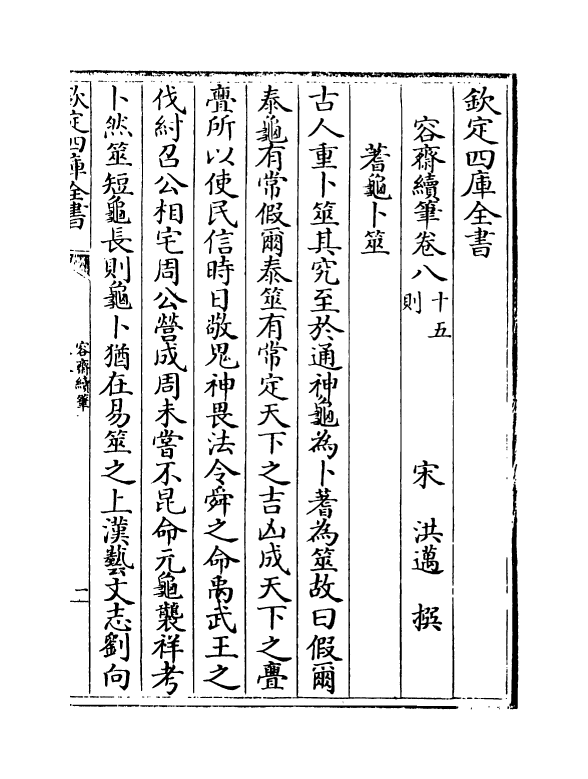 欽定四庫全書
容齋續筆卷八十五則
宋 洪邁 撰
蓍龜卜筮
古人重卜筮其究至於通神龜為卜蓍為筮故曰假爾
泰龜有常假爾泰筮有常定天下之吉凶成天下之亹
亹所以使民信時日敬鬼神畏法令舜之命禹武王之
伐紂召公相宅周公營成周未嘗不昆命元龜襲祥考
卜然筮短龜長則龜卜猶在易筮之上漢藝文志劉向
欽定四庫全書
容齋續筆